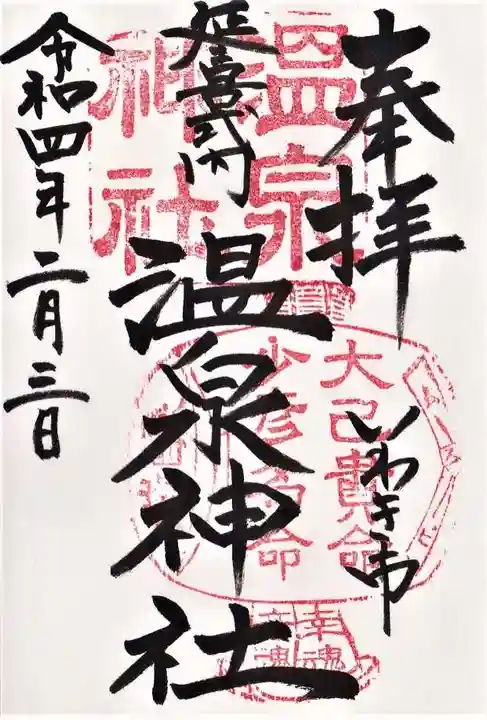 奉拝
いわき市
延喜式内
温泉神社
令和四年二月三日
温泉
神社
大己貴命
少彦名命
幸魂
奇魂